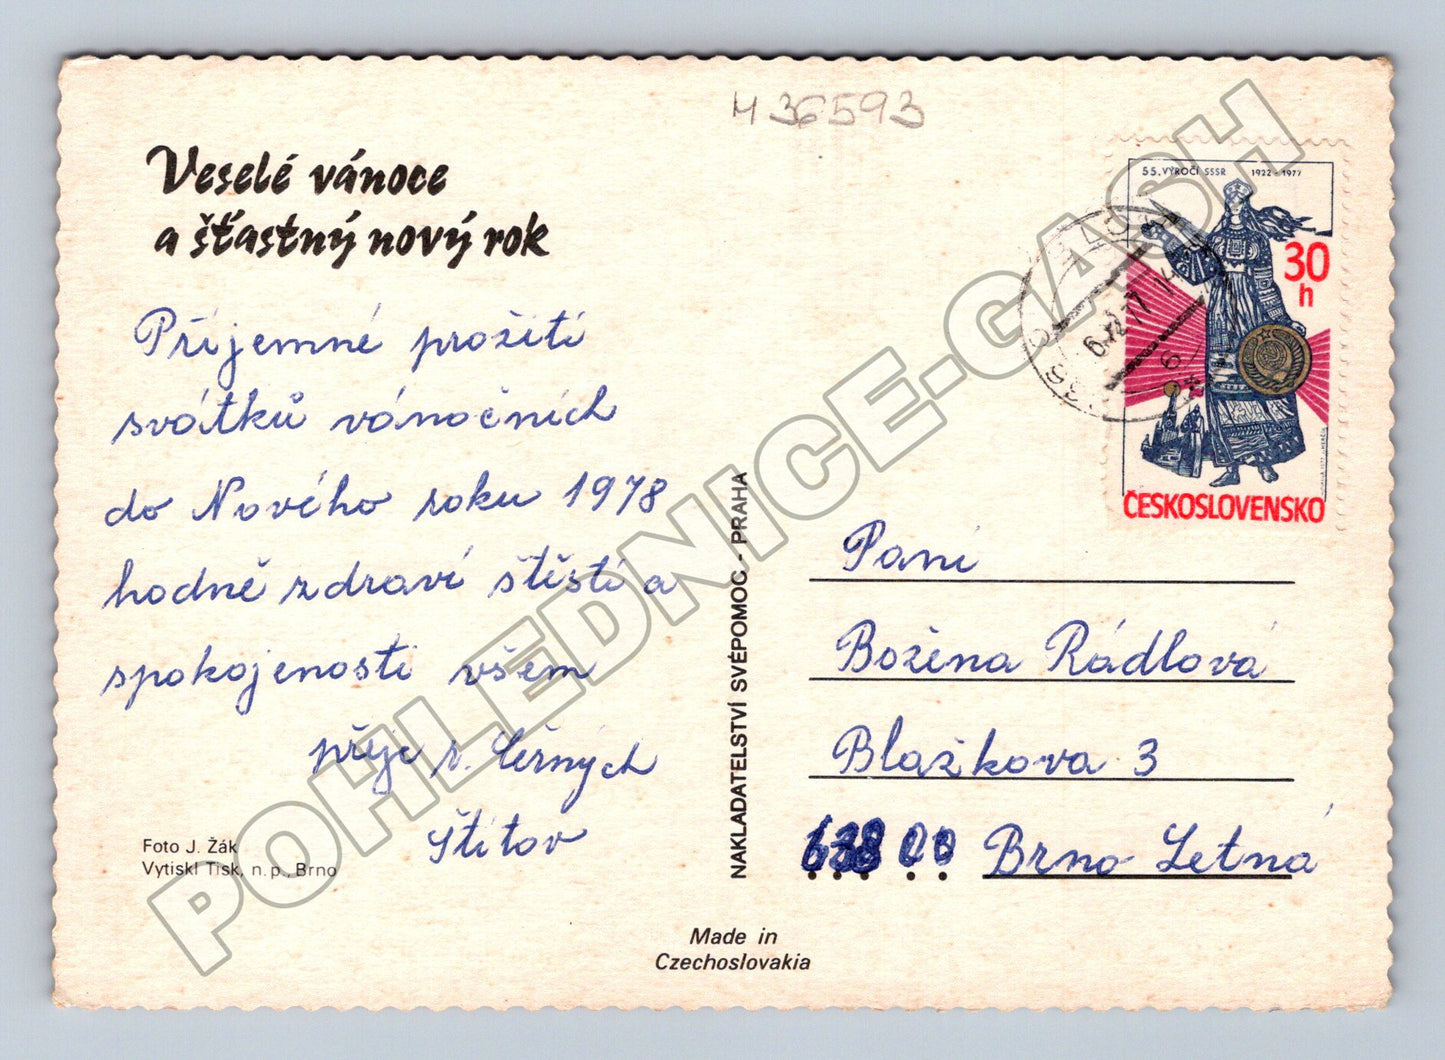 M 36593
Veselé vánoce
a šťastný nový rok
Příjemné prožití
svátků vánočních
do Nového roku 1978
hodně zdraví štěstí a
spokojenosti všem
přeje r. Černých
Štítov
Foto J. Žák
Vytiskl Tisk, n.p., Brno
NAKLADATELSTVÍ SVÉPOMOC - PRAHA
Made in
Czechoslovakia
55. VÝROČÍ SSSR 1922 - 1977
30
h
ČESKOSLOVENSKO
Paní
Božena Rádlová
Blažkova 3
638 00 Brno Letná
POHLEDNICE-GASH